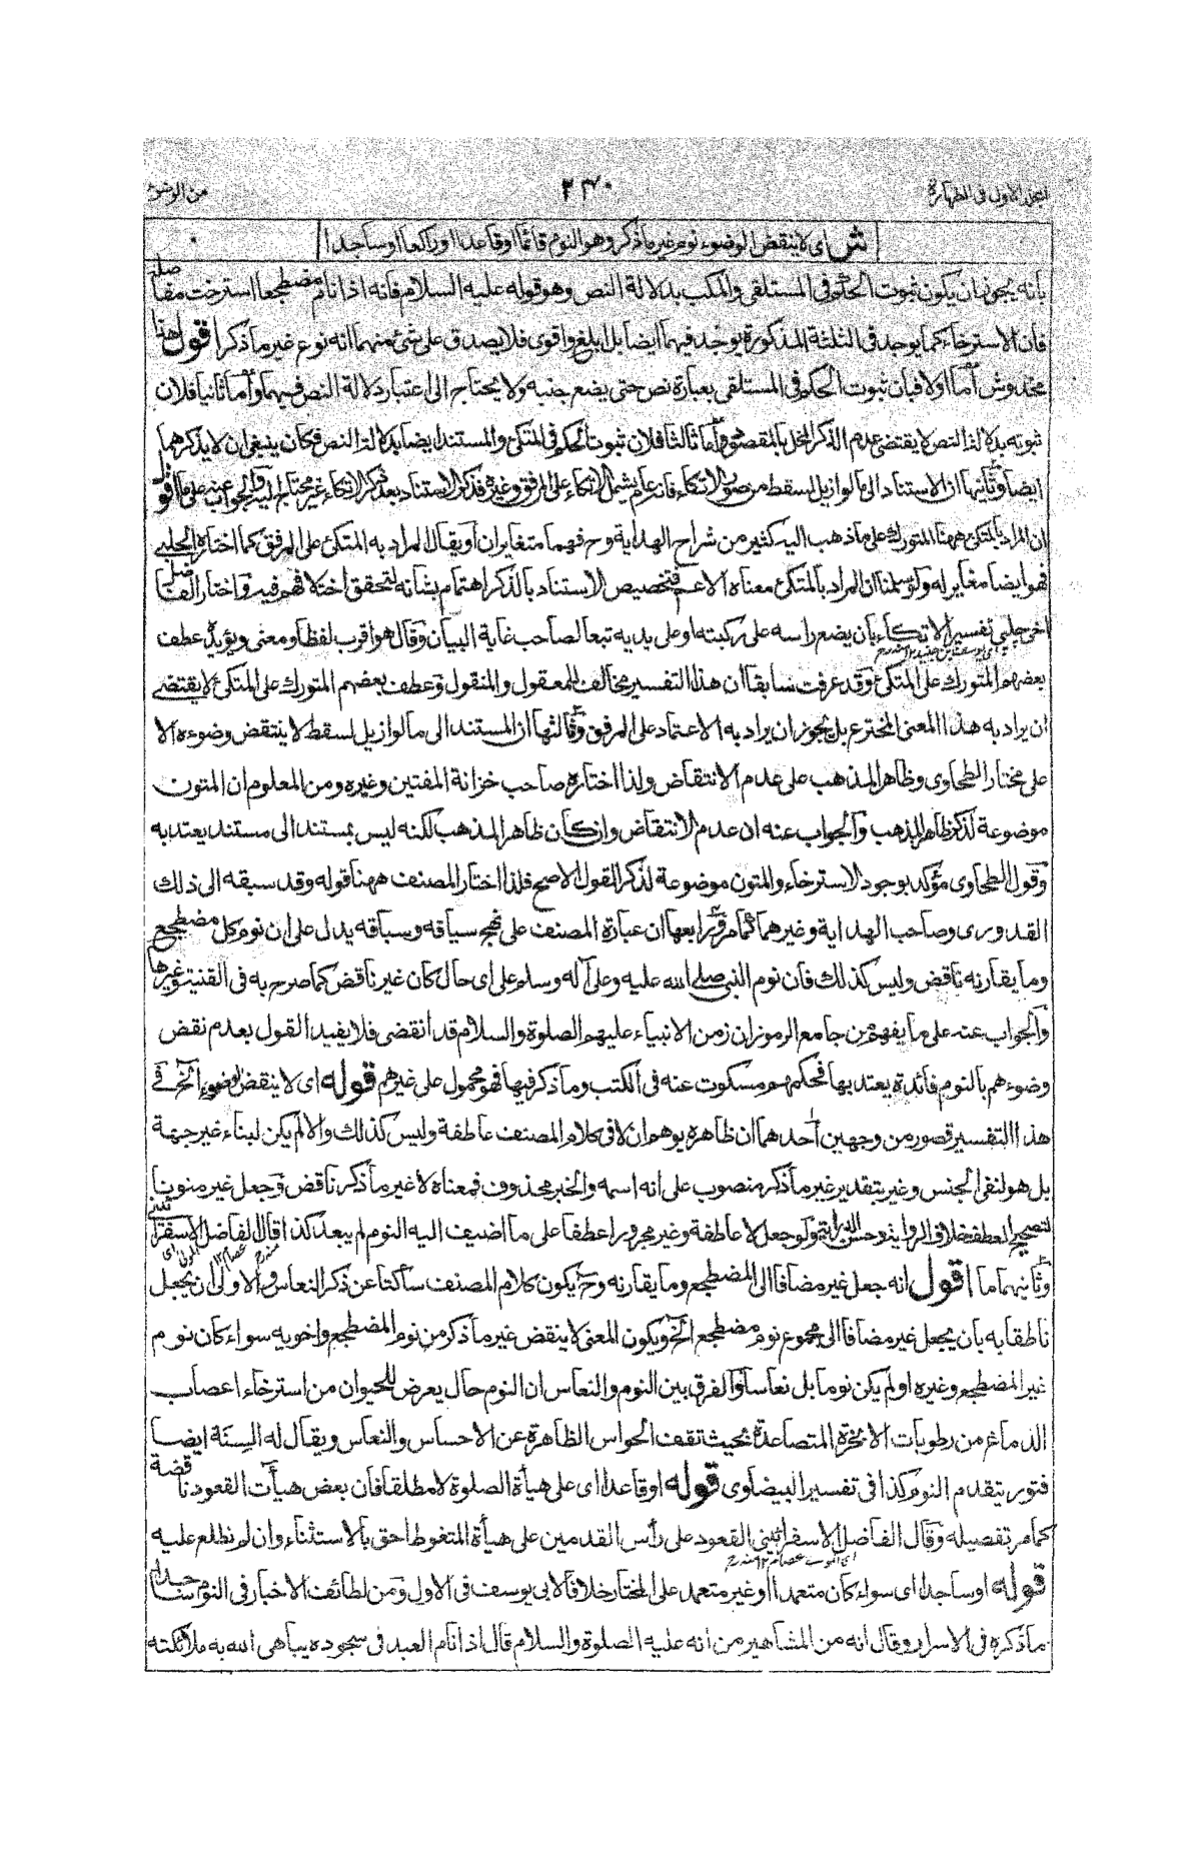 المجلد الاول فى الطهارة
٢٣٠
من الوضوء
ش اى لا ينقض الوضوء نوم غير ما ذكر وهو النوم قائما او قاعدا او راكعا او ساجدا
بانه يجوز ان يكون ثبوت الحكم فى المستلقى والمكب بدلالة النص وهو قوله عليه السلام فانه اذا نام مضطجعا استرخت مفاصله
فان الاسترخاء كما يوجد فى الثلثة المذكورة يوجد فيهما ايضا بل ابلغ واقوى فلا يصدق على شئ منهما انه نوع غير ما ذكر اقول هذا
مخدوش اما اولا فبان ثبوت الحكم فى المستلقى بعبارة نص حتى يضع جنبه ولا يحتاج الى اعتبار دلالة النص فيهما واما ثانيا فلان
ثبوته بدلالة النص لا يقتضى عدم الذكر المخل بالمقصود واما ثالثا فلان ثبوت الحكم فى المتكئ والمستند ايضا بدلالة النص فكان ينبغى ان لا يذكرهما
ايضا وثانيها ان الاستناد الى ما لو ازيل لسقط من صور الاتكاء فانه عام يشمل الاتكاء على المرفق وغيره فذكر الاستناد بعد ذكر الاتكاء غير محتاج اليه والجواب عنه على ما اقول
ان المراد بالمتكئ ههنا المتورك على ما ذهب اليه كثير من شراح الهداية وح فهما متغايران او يقال المراد به المتكئ على المرفق كما اختاره الحلبى
فهو ايضا مغاير له ولو سلمنا ان المراد بالمتكئ معناه الاعم فتخصيص الاستناد بالذكر اهتمام بشانه لتحقق اختلافهم فيه واختار الفاضل
اخى چلپى تفسير الاتكاء بان يضع راسه على ركبتيه او على يديه تبعا لصاحب غاية البيان وقال هو اقرب لفظا ومعنى ويؤيده عطف
بعضهم المتورك على المتكئ وقد عرفت سابقا ان هذا التفسير مخالف للمعقول والمنقول وعطف بعضهم المتورك على المتكئ لا يقتضى
ان يراد به هذا المعنى المخترع بل يجوز ان يراد به الاعتماد على المرفق وثالثها ان المستند الى ما لو ازيل لسقط لا ينتقض وضوءه الا
على مختار الطحاوى وظاهر المذهب على عدم الانتقاض ولذا اختاره صاحب خزانة المفتين وغيره ومن المعلوم ان المتون
موضوعة لذكر ظاهر المذهب والجواب عنه ان عدم الانتقاض وان كان ظاهر المذهب لكنه ليس بمستند الى مستند يعتد به
وقول الطحاوى مؤكد بوجود الاسترخاء والمتون موضوعة لذكر القول الاصح فلذا اختار المصنف ههنا قوله وقد سبقه الى ذلك
القدورى وصاحب الهداية وغيرهما كما مر ورابعها ان عبارة المصنف على نهج سياقه وسباقه يدل على ان نوم كل مضطجع
وما يقارنه ناقض وليس كذلك فان نوم النبى صلى الله عليه وعلى آله وسلم على اى حال كان غير ناقض كما صرح به فى القنية وغيرها
والجواب عنه على ما يفهم من جامع الرموز ان زمن الانبياء عليهم الصلوة والسلام قد انقضى فلا يفيد القول بعدم نقض
وضوءهم بالنوم فائدة يعتد بها فحكمهم مسكوت عنه فى الكتب وما ذكر فيها فهو محمول على غيرهم قوله اى لا ينقض الوضوء الخ فى
هذا التفسير قصور من وجهين احدهما ان ظاهره يوهم ان لا فى كلام المصنف عاطفة وليس كذلك والا لم يكن لبناء غير جهة
بل هو لنفى الجنس وغير بتقدير غير ما ذكر منصوب على انه اسمه والخبر محذوف فمعناه لا غير ما ذكر ناقض وجعل غير منونا
لتصحيح العطف خلاف الرواية وحسن الدراية ولو جعل لا عاطفة وغير مجرورا عطفا على ما اضيف اليه النوم لم يبعد كذا قال الفاضل الاسفرائنى
وثانيهما ما اقول انه جعل غير مضافا الى المضطجع وما يقارنه وح يكون كلام المصنف ساكتا عن ذكر النعاس والاولى ان يجعل
ناطقا به بان يجعل غير مضافا الى مجموع نوم مضطجع الخ ويكون المعنى لا ينقض غير ما ذكر من نوم المضطجع واخويه سواء كان نوم
غير المضطجع وغيره او لم يكن نوما بل نعاسا والفرق بين النوم والنعاس ان النوم حال يعرض للحيوان من استرخاء اعصاب
الدماغ من رطوبات الابخرة المتصاعدة بحيث تقف الحواس الظاهرة عن الاحساس والنعاس ويقال له السِنَة ايضا
فتور يتقدم النوم كذا فى تفسير البيضاوى قوله او قاعدا اى على هيأة الصلوة لا مطلقا فان بعض هيآت القعود ناقضة
كما مر تفصيله وقال الفاضل الاسفرائينى القعود على رأس القدمين على هيأة المتغوط احق بالاستثناء وان لم نطلع عليه
قوله او ساجدا اى سواء كان متعمدا او غير متعمد على المختار خلافا لابى يوسف فى الاول ومن لطائف الاخبار فى النوم ساجدا
ما ذكره فى الاسرار وقال انه من المشاهير من انه عليه الصلوة والسلام قال اذا نام العبد فى سجوده يباهى الله به ملائكته